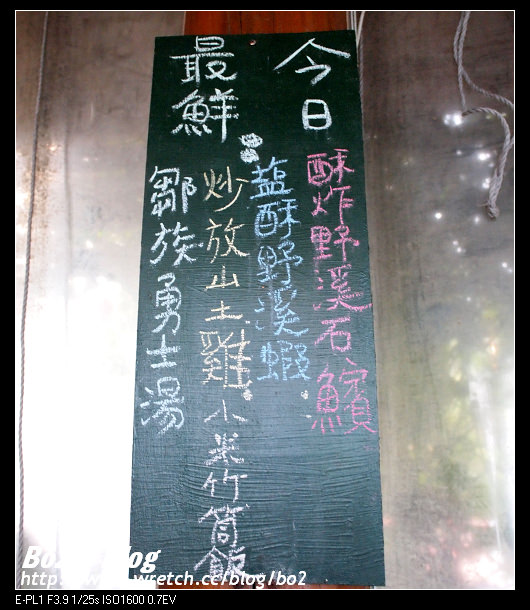 今日
最鮮
酥炸野溪石鱝
盐酥野溪蝦
炒放山土雞 小米竹筒飯
鄒族勇士湯
http://www.wretch.cc/blog/bo2
E-PL1 F3.9 1/25s ISO1600 0.7EV